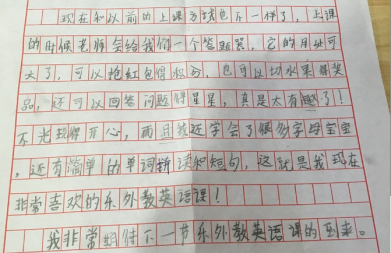 现在和以前的上课方式也不一样了，上课
的时候老师会给我们一个答题器，它的用处可
大了，可以抢红包得积分，也可以切水果得奖
品，还可以回答问题得星星，真是太有趣了！
不光玩得开心，而且我还学会了很多字母宝宝
，还有简单的单词拼读和短句，这就是我现在
非常喜欢的乐外教英语课！
我非常期待下一节乐外教英语课的到来。